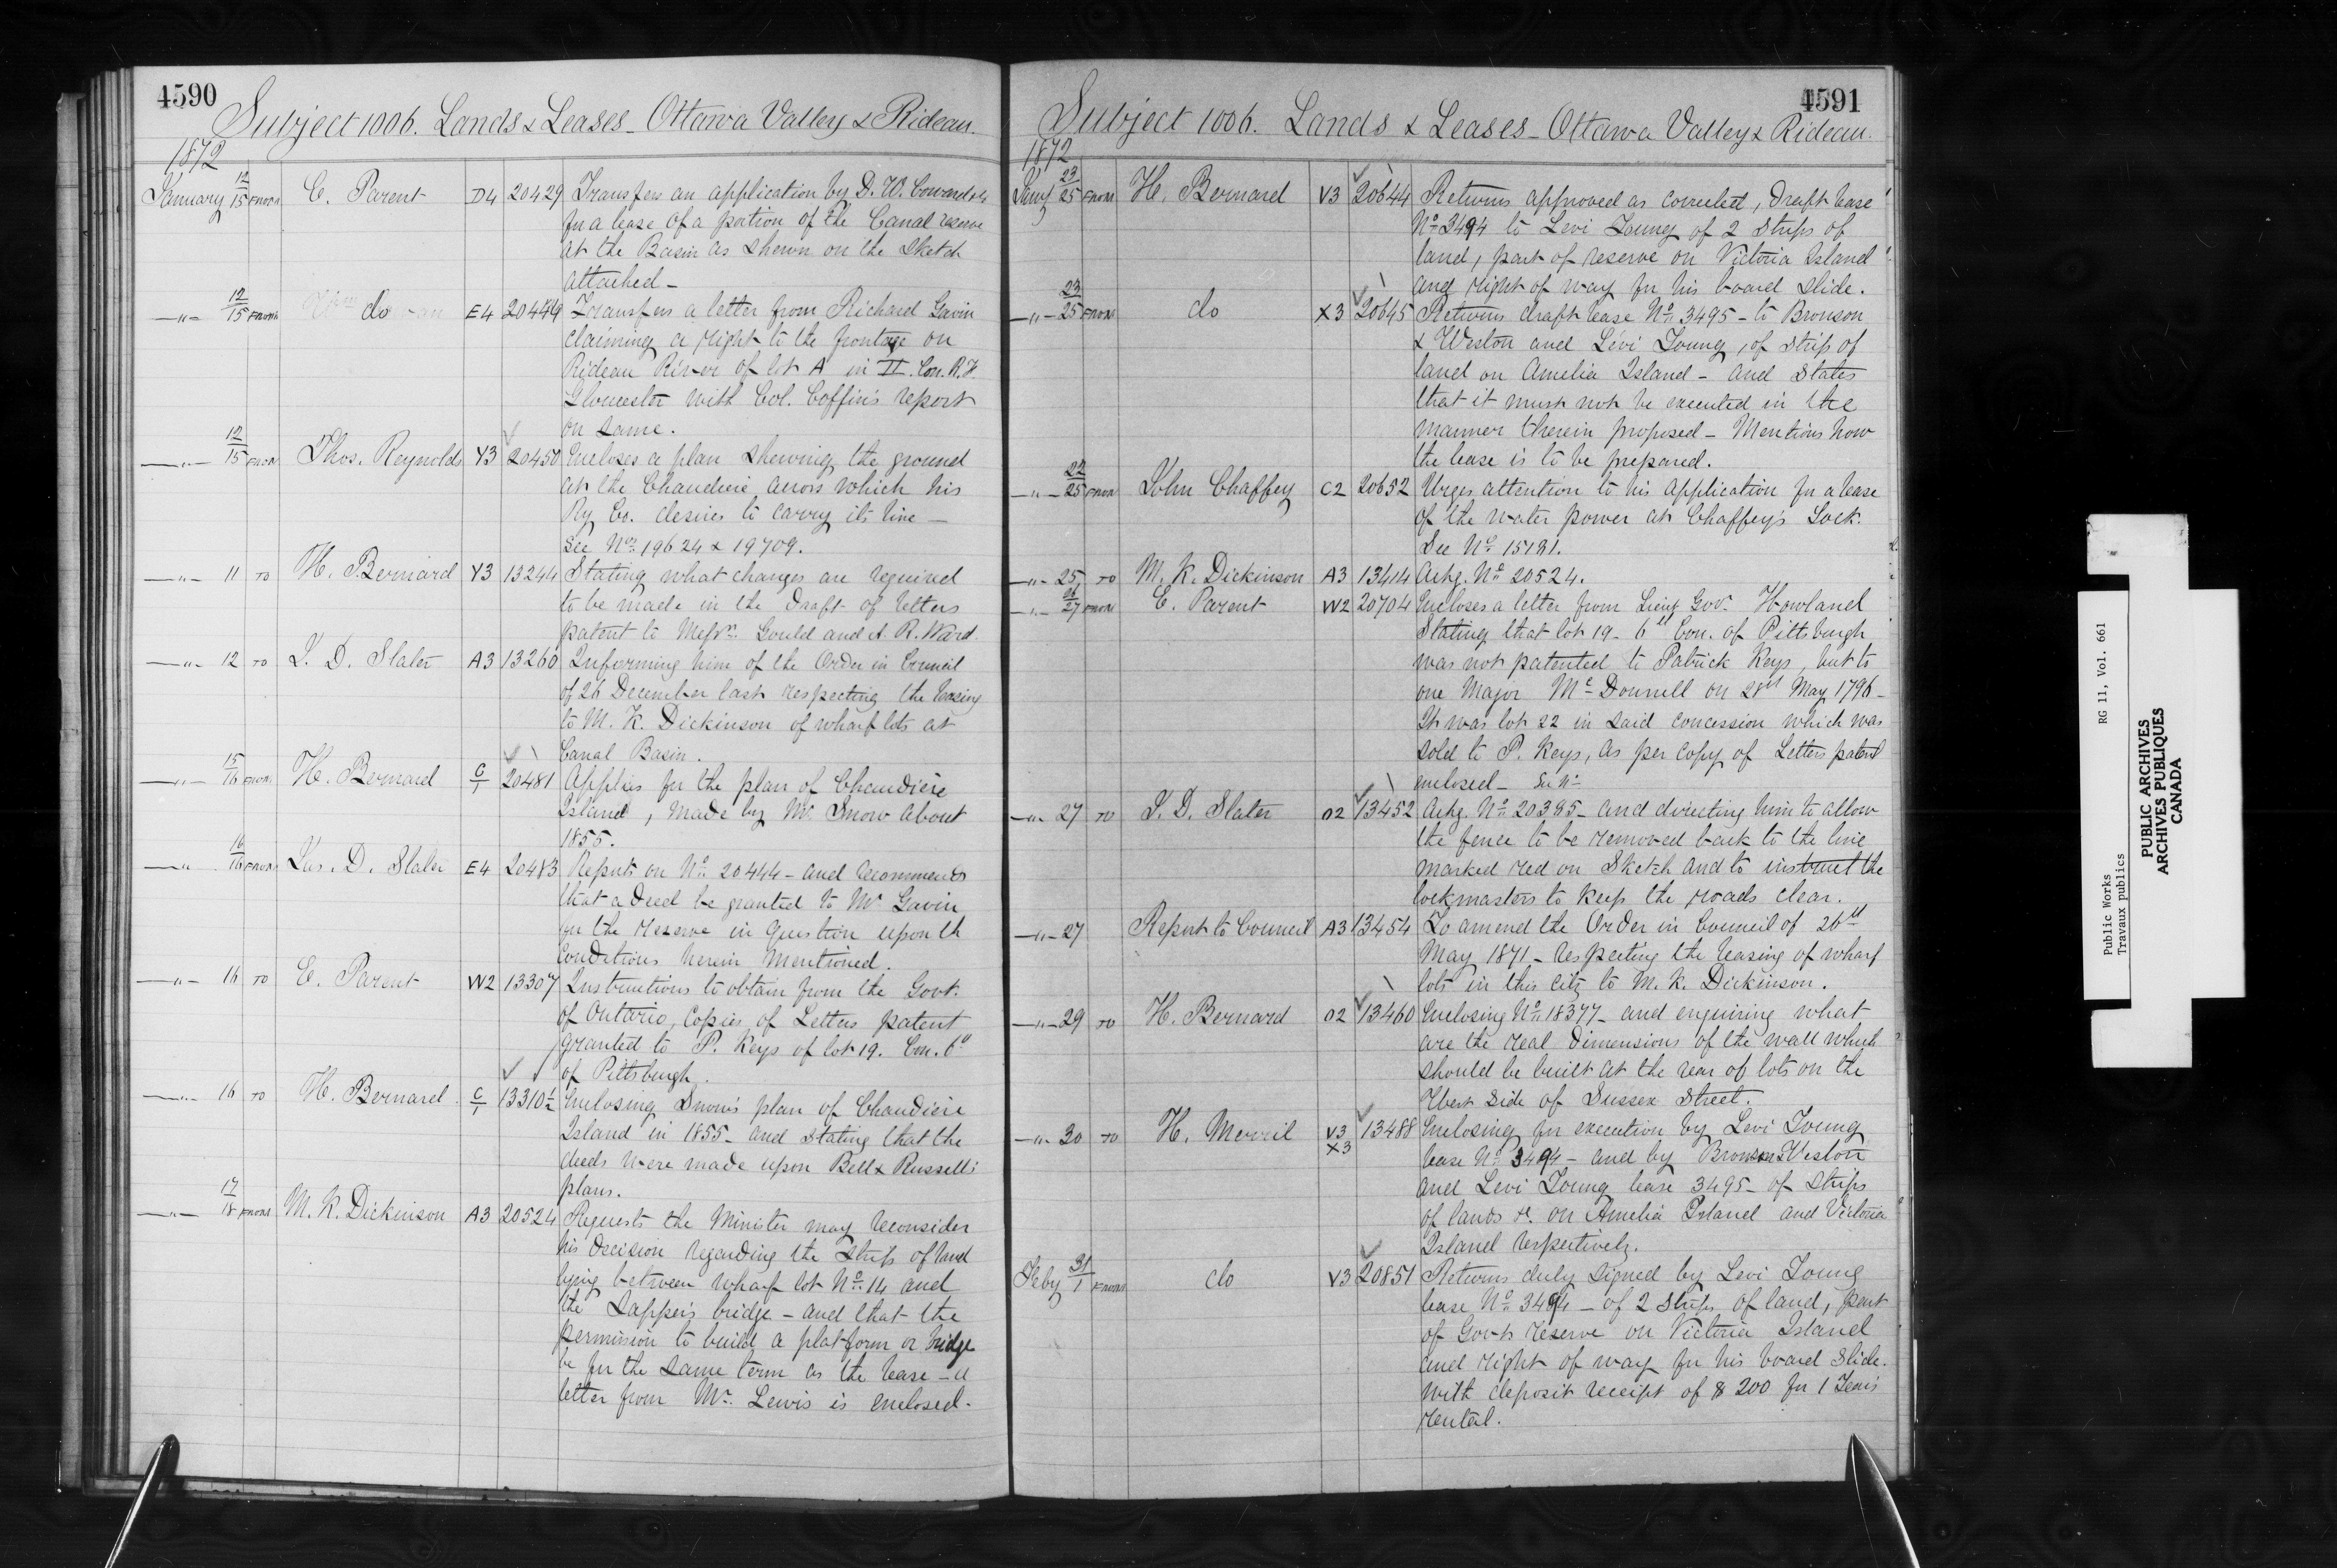 4590
Subject 1006. Lands & Leases - Ottawa Valley & Rideau.
1872
January 12/15 FROM E. Parent D4 20429 Transfers an application by D. W.
for a lease of a portion of the Canal reserve
at the Basin as shewn on the sketch
attached -
-"- 12/15 FROM do E4 20449 Transfers a letter from Richard Gavin
claiming a right to the frontage on
Rideau River of lot A in II. Con. R.F.
Gloucester with Col. Coffin's report
on same.
-"- 12/15 FROM Thos. Reynolds Y3 20450 Encloses a plan shewing the ground
at the Chaudiere across which his
Ry Co. desires to carry its line -
See Nos 19624 & 19709.
-"- 11 TO H. Bernard Y3 13244 Stating what changes are required
to be made in the draft of letters
patent to Messrs. Gould and A. R. Ward.
-"- 12 TO J. D. Slater A3 13260 Informing him of the Order in Council
of 26 December last respecting the leasing
to M. K. Dickinson of wharf lots at
Canal Basin.
-"- 15/16 FROM H. Bernard C/1 20481 Applies for the plan of Chaudière
Island, made by Mr. Snow about
1855.
-"- 16/16 FROM Jas. D. Slater E4 20483 Reports on No. 20444 - and recommends
that a deed be granted to Mr Gavin
for the reserve in question upon th
conditions herein mentioned.
-"- 16 TO E. Parent W2 13307 Instructions to obtain from the Govt.
of Ontario, copies of Letters patent
granted to P. Keys of lot 19. Con. 6"
of Pittsburgh.
-"- 16 TO H. Bernard C/1 13310½ Enclosing Snow's plan of Chaudière
Island in 1855 - and stating that the
deeds were made upon Bell & Russell's
plans.
-"- 17/18 FROM M. K. Dickinson A3 20524 Requests the Minister may reconsider
his decision regarding the strip of land
lying between wharf lot No. 14 and
the Sapper's bridge - and that the
permission to build a platform or bridge
be for the same term as the lease - a
letter from Mr. Lewis is enclosed.
4591
Subject 1006. Lands & Leases - Ottawa Valley & Rideau.
1872
Jany 23/25 FROM H. Bernard V3 20644 Returns approved as corrected, draft lease
No. 3494 to Levi Young of 2 strips of
land, part of reserve on Victoria Island
and right of way for his board slide.
-"- 23/25 FROM do X3 20645 Returns draft lease No. 3495 - to Bronson
& Weston and Levi Young, of strip of
land on Amelia Island - and states
that it must not be executed in the
manner therein proposed - Mentions how
the lease is to be prepared.
-"- 22/25 FROM John Chaffey C2 20652 Urges attention to his application for a lease
of the water power at Chaffey's Lock.
See No. 15131.
-"- 25 TO M. K. Dickinson A3 13414 Ackg. No. 20524.
-"- 26/27 FROM E. Parent W2 20704 Encloses a letter from Lieut Govr. Howland
stating that lot 19 - 6th Con. of Pittsburgh
was not patented to Patrick Keys, but to
one Major McDonnell on 28th May 1796 -
It was lot 22 in said concession which was
sold to P. Keys, as per copy of Letters patent
enclosed - See No.
-"- 27 TO J. D. Slater O2 13452 Ackg. No. 20385 - and directing him to allow
the fence to be removed back to the line
marked red on sketch and to instruct the
lockmasters to keep the roads clear.
-"- 27 Report to Council A3 13454 To amend the Order in Council of 26th
May 1871 - respecting the leasing of wharf
lots in this city to M. K. Dickinson.
-"- 29 TO H. Bernard O2 13460 Enclosing No. 18377 - and enquiring what
are the real dimensions of the wall which
should be built at the rear of lots on the
West side of Sussex Street.
-"- 30 TO H. Merrill V3 13488 Enclosing for execution by Levi Young
X3 lease No. 3494 - and by Bronson & Weston
and Levi Young lease 3495 - of strips
of lands &c. on Amelia Island and Victoria
Island respectively.
Feby 31/1 FROM do V3 20851 Returns duly signed by Levi Young
lease No. 3494 - of 2 strips of land, part
of Govts reserve on Victoria Island
and right of way for his board slide.
with deposit receipt of $200 for 1 Year's
rental.
Public Works RG 11, Vol. 661
Travaux publics
PUBLIC ARCHIVES
ARCHIVES PUBLIQUES
CANADA